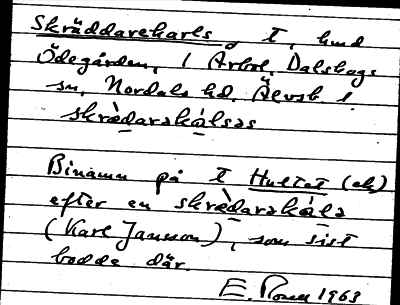 Skräddarekarls, T, hmd
Ödegården, 1 Ärbol, Dalskogs
sn, Nordals hd, Älvsb. l.
skrèdarakálsəs
Binamn på T Hultet (ek)
efter en skrèdarakáls
(Karl Jansson), som sist
bodde där.
E. 1963